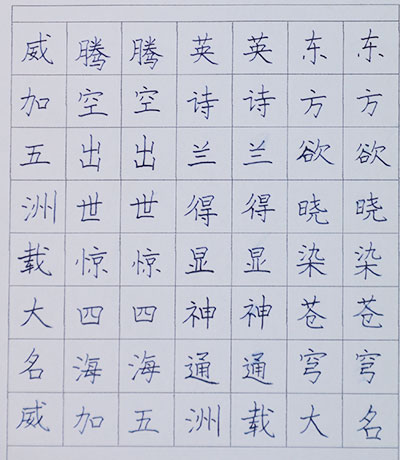 东方欲晓染苍穹
东方欲晓染苍穹
英诗兰得显神通
英诗兰得显神通
腾空出世惊四海
腾空出世惊四海
威加五洲载大名
威加五洲载大名